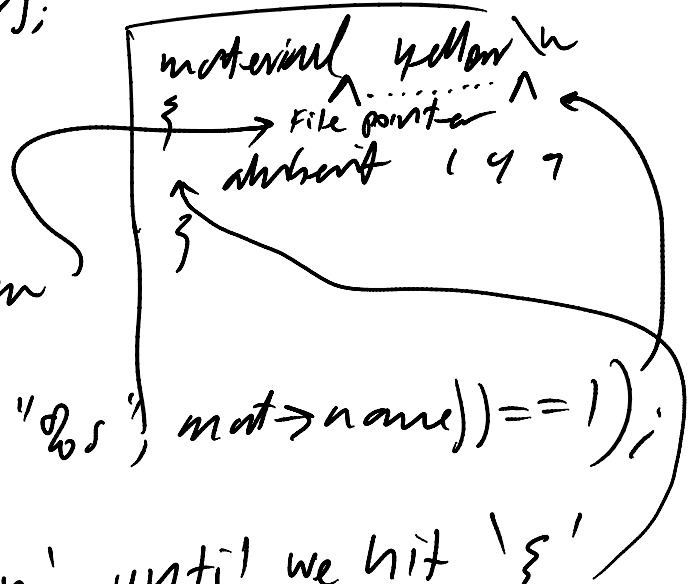 material yellow\n
{ File pointer
ambient 1 4 7
}
"%s", mat->name)) == 1);
until we hit '{'